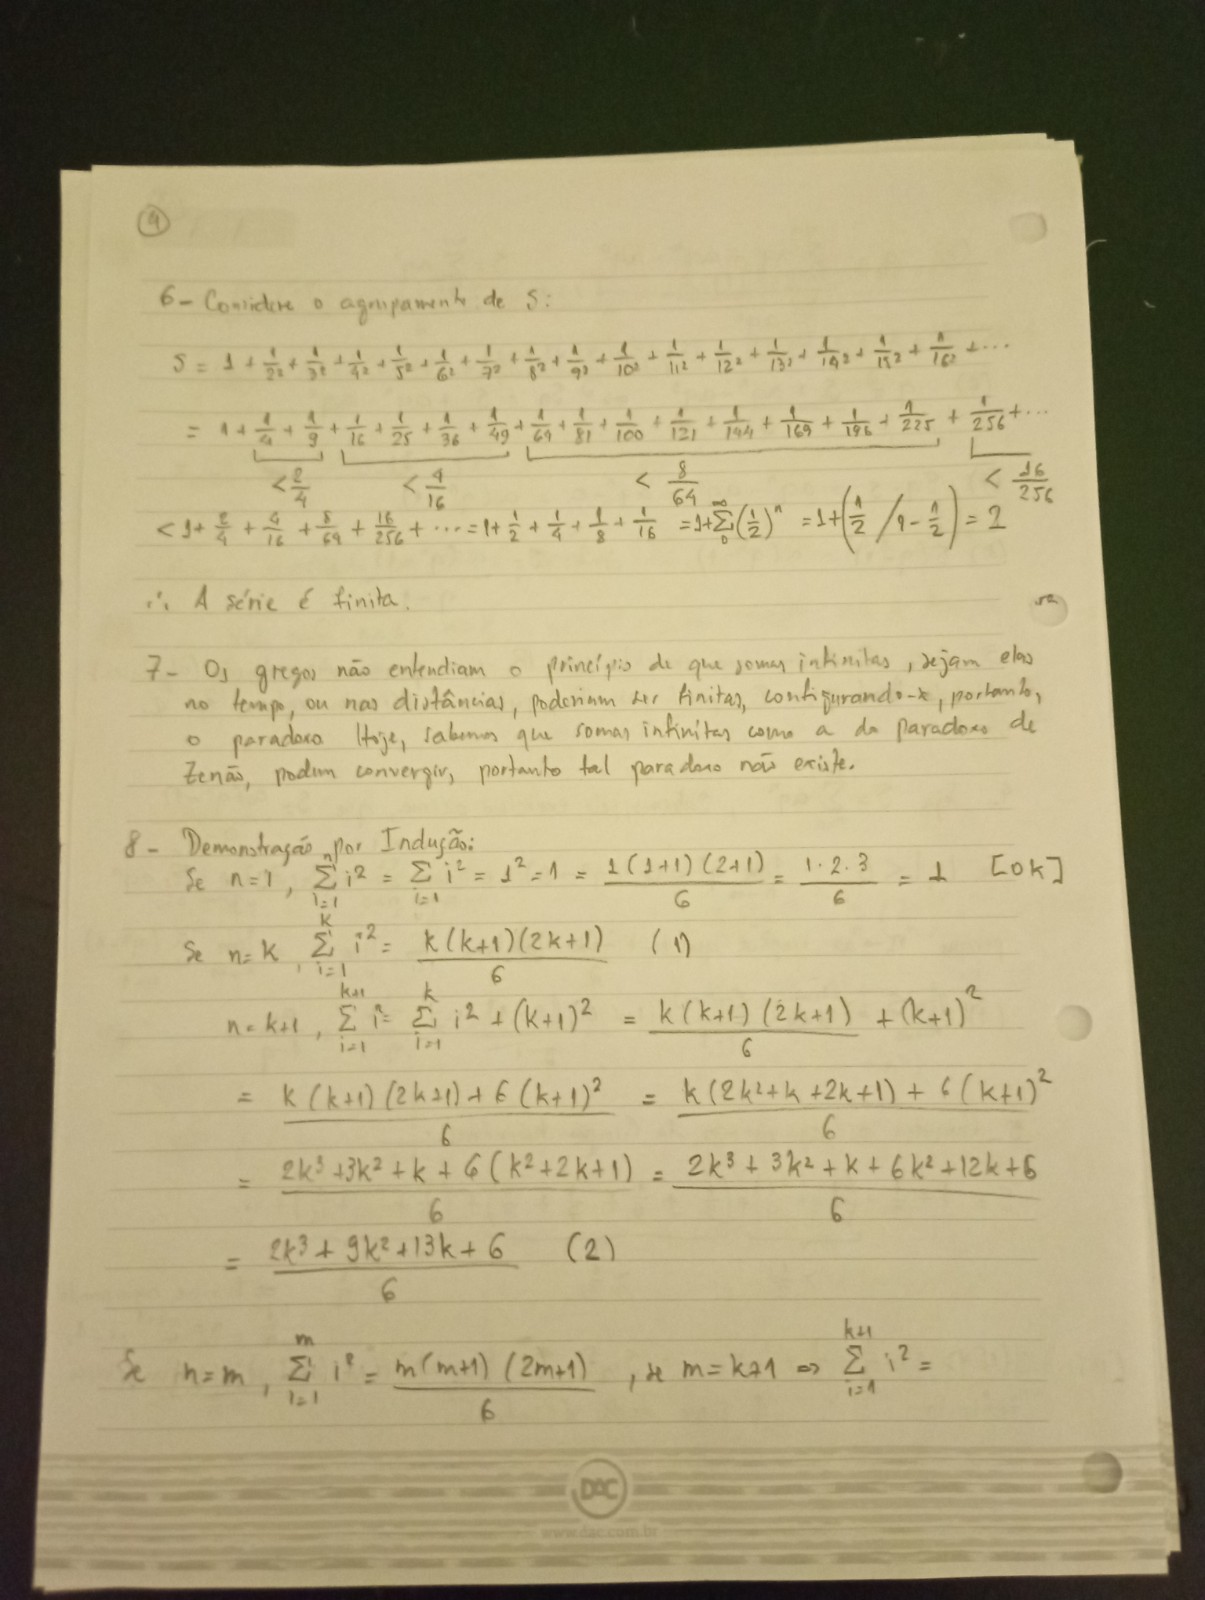 4
6- Considere o agrupamento de S:
S = 1 + 1/2² + 1/3² + 1/4² + 1/5² + 1/6² + 1/7² + 1/8² + 1/9² + 1/10² + 1/11² + 1/12² + 1/13² + 1/14² + 1/15² + 1/16² + ...
= 1 + 1/4 + 1/9 + 1/16 + 1/25 + 1/36 + 1/49 + 1/64 + 1/81 + 1/100 + 1/121 + 1/144 + 1/169 + 1/196 + 1/225 + 1/256 + ...
< 2/4 < 4/16 < 8/64 < 16/256
< 1 + 2/4 + 4/16 + 8/64 + 16/256 + ... = 1 + 1/2 + 1/4 + 1/8 + 1/16 = 1 + ∑_0^∞ (1/2)^n = 1 + (1/2 / 1 - 1/2) = 2
∴ A série é finita.
7- Os gregos não entendiam o princípio de que somas infinitas, sejam elas
no tempo, ou nas distâncias, poderiam ser finitas, configurando-se, portanto,
o paradoxo Hoje, sabemos que somas infinitas como a do paradoxo de
Zenão, podem convergir, portanto tal paradoxo não existe.
8- Demonstração por Indução:
Se n=1, ∑_{i=1}^n i² = ∑_{i=1} i² = 1² = 1 = 1(1+1)(2+1)/6 = 1·2·3/6 = 1 [OK]
Se n=k, ∑_{i=1}^k i² = k(k+1)(2k+1)/6 (1)
n=k+1, ∑_{i=1}^{k+1} i² = ∑_{i=1}^k i² + (k+1)² = k(k+1)(2k+1)/6 + (k+1)²
= k(k+1)(2k+1) + 6(k+1)²/6 = k(2k²+k+2k+1) + 6(k+1)²/6
= 2k³+3k²+k+6(k²+2k+1)/6 = 2k³+3k²+k+6k²+12k+6/6
= 2k³+9k²+13k+6/6 (2)
Se n=m, ∑_{i=1}^m i² = m(m+1)(2m+1)/6, se m=k+1 ⇒ ∑_{i=1}^{k+1} i² =
DAC
www.dac.com.br